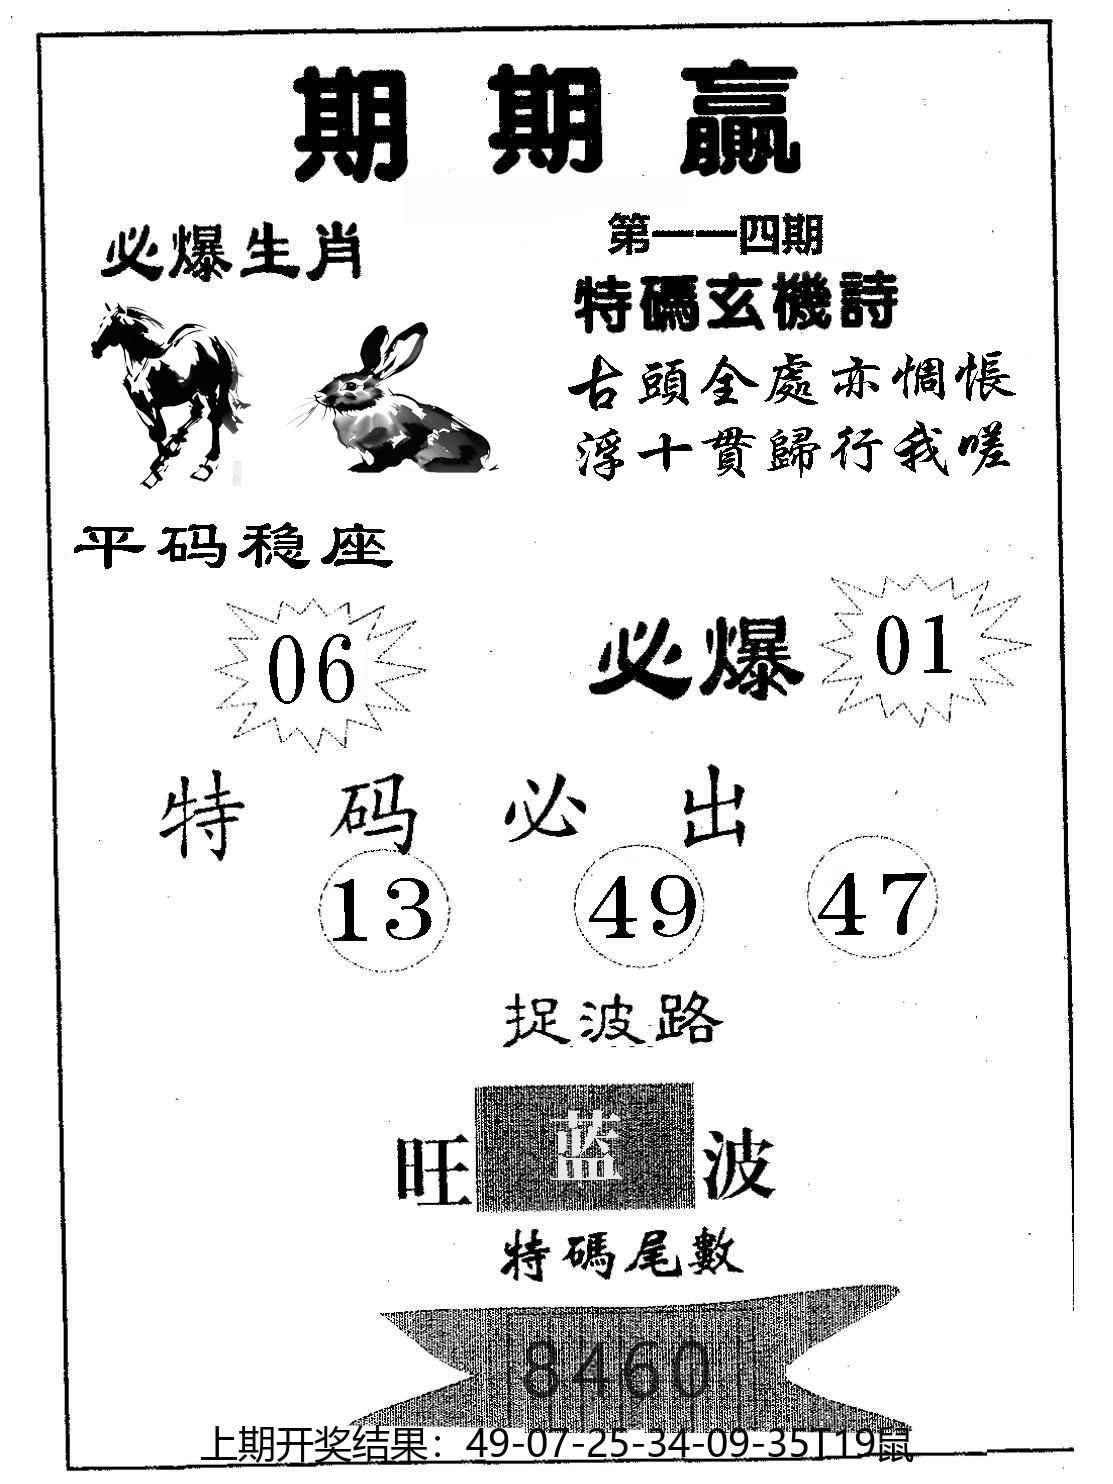 期期贏
必爆生肖
第一一四期
特碼玄機詩
古頭全處亦惆悵
浮十貫歸行我嗟
平码稳座
06
必爆 01
特码必出
13 49 47
捉波路
旺蓝波
特碼尾數
8460
上期开奖结果：49-07-25-34-09-35T19鼠